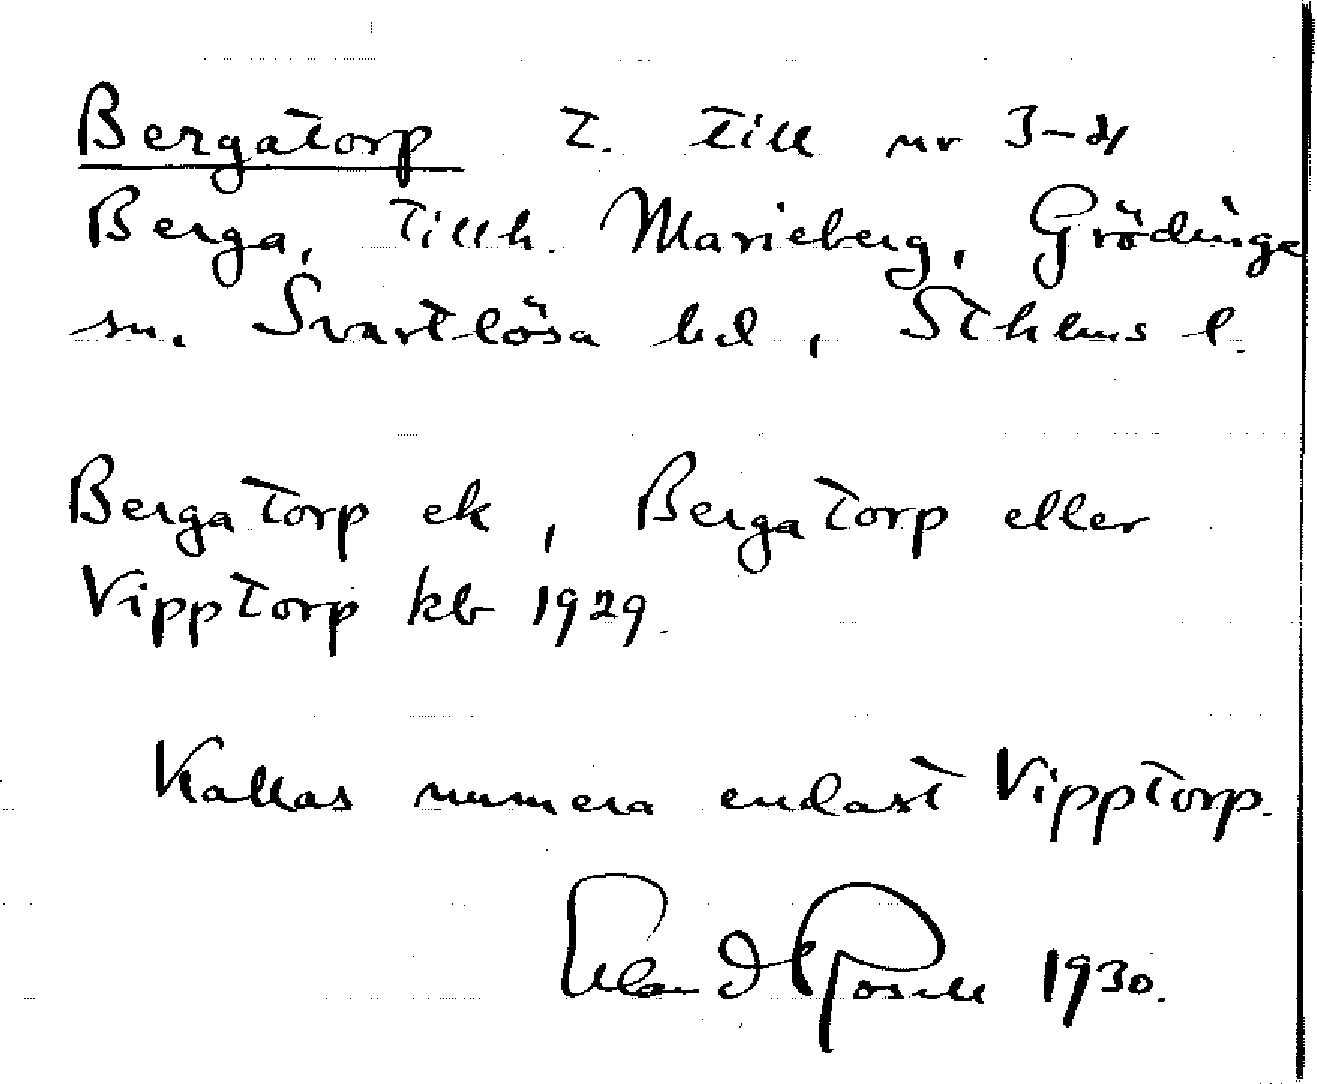 Bergatorp t. till nr 3-4
Berga, tillh. Marieberg, Grödinge
sn. Svartlösa hd, Sthlms l.
Bergatorp ek, Bergatorp eller
Vipptorp kb 1929.
Kallas numera endast Vipptorp.
Erland Rosell 1930.